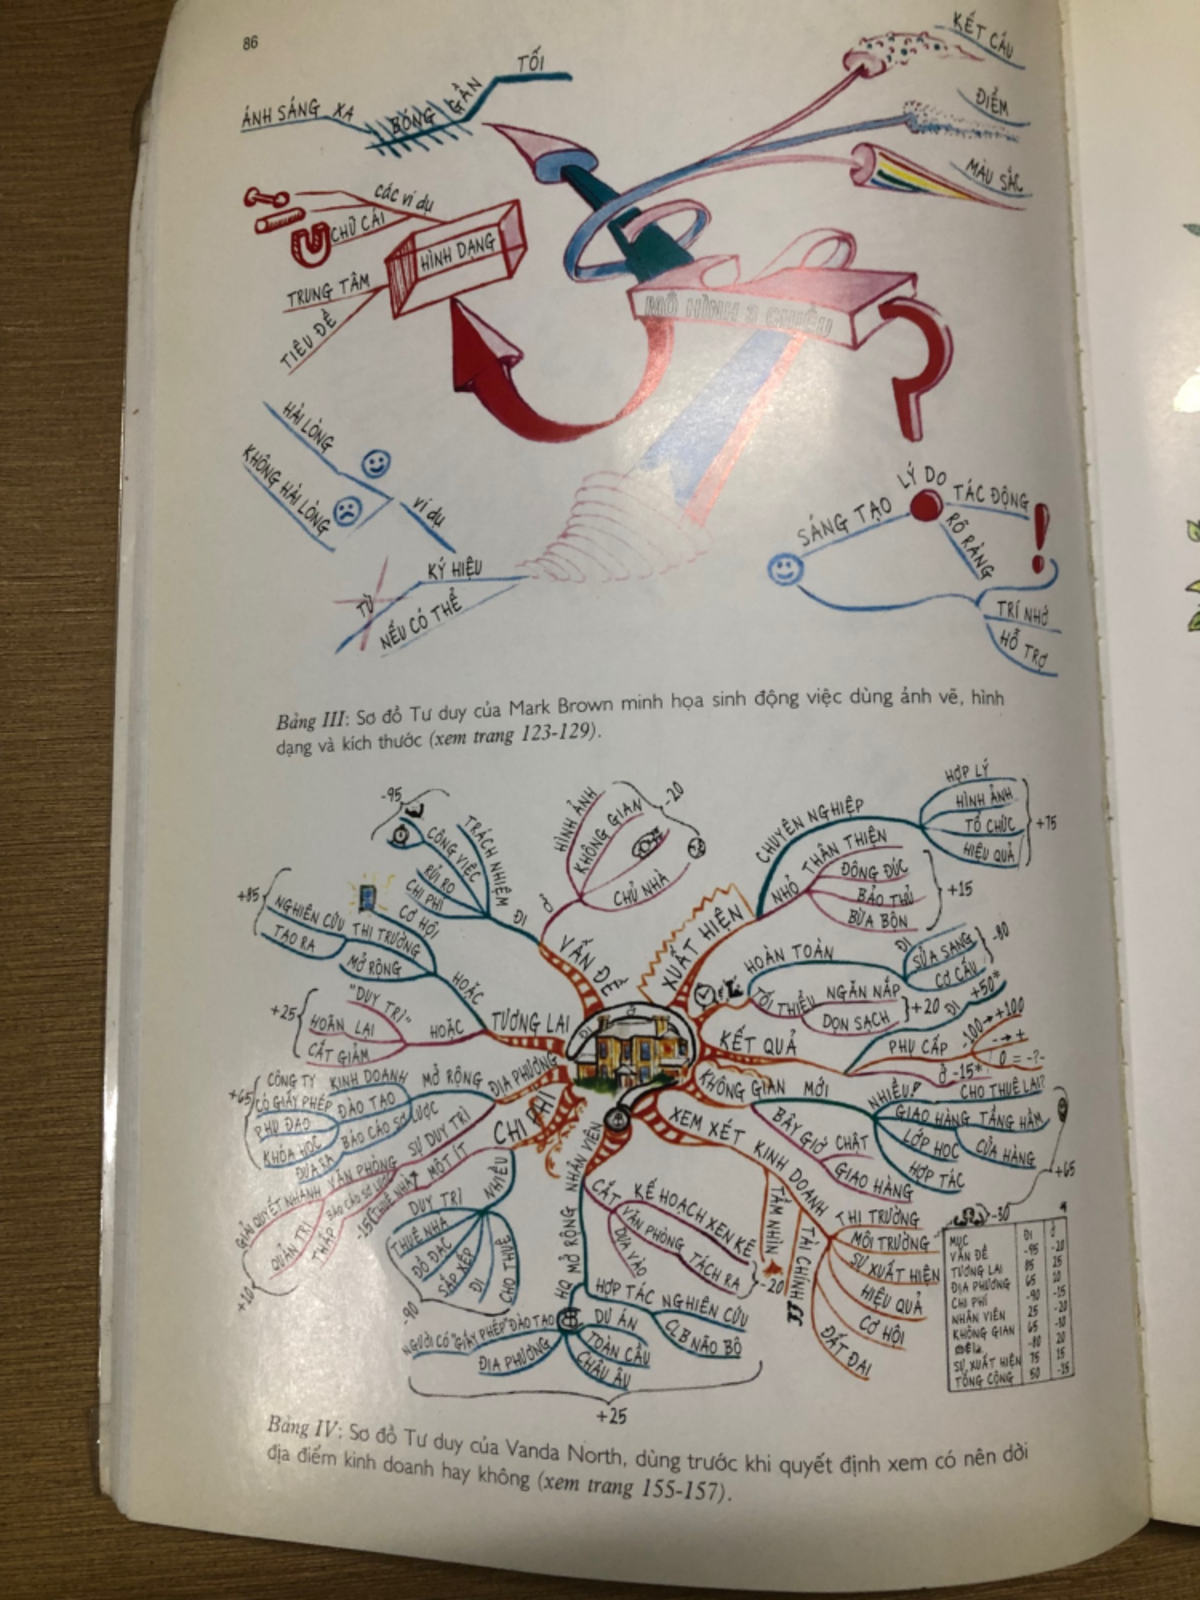 86
TỐI
GẦN
BÓNG
XA
ÁNH SÁNG
KẾT CẤU
ĐIỂM
MÀU SẮC
các ví dụ
CHỮ CÁI
HÌNH DẠNG
TRUNG TÂM
TIÊU ĐỀ
MÔ HÌNH 3 CHIỀU
HÀI LÒNG
KHÔNG HÀI LÒNG
ví dụ
KÝ HIỆU
TỪ
NẾU CÓ THỂ
LÝ DO
SÁNG TẠO
TÁC ĐỘNG
RÕ RÀNG
TRÍ NHỚ
HỖ TRỢ
Bảng III: Sơ đồ Tư duy của Mark Brown minh họa sinh động việc dùng ảnh vẽ, hình
dạng và kích thước (xem trang 123-129).
-95
CÔNG VIỆC
TRÁCH NHIỆM
RỦI RO
CHI PHÍ
CƠ HỘI
ĐI
HÌNH ẢNH
KHÔNG GIAN
-20
CHỦ NHÀ
Ở
VẤN ĐỀ
XUẤT HIỆN
CHUYÊN NGHIỆP
HỢP LÝ
HÌNH ẢNH
TỔ CHỨC
HIỆU QUẢ
+75
NHỎ
THÂN THIỆN
ĐÔNG ĐÚC
BẢO THỦ
BỪA BÔN
+15
+85
NGHIÊN CỨU THỊ TRƯỜNG
TẠO RA
MỞ RỘNG
HOẶC
+25
"DUY TRÌ"
HOÃN LẠI
CẮT GIẢM
HOẶC
TƯƠNG LAI
HOÀN TOÀN
ĐI
SỬA SANG
CƠ CẤU
-80
TỐI THIỂU
NGĂN NẮP
DỌN SẠCH
+20
ĐI +50*
KẾT QUẢ
PHỤ CẤP
-100→+100
- → +
0 = -?-
Ở -15*
ĐỊA PHƯƠNG
MỞ RỘNG
KINH DOANH
CÔNG TY
CÓ GIẤY PHÉP
ĐÀO TẠO
PHỤ ĐẠO
KHÓA HỌC
BÁO CÁO SƠ LƯỢC
ĐƯA RA
+65
SỰ DUY TRÌ
VĂN PHÒNG
GIẢI QUYẾT NHANH
QUẢN TRỊ
+10
CHI PHÍ
MỘT ÍT
THUÊ NHÀ
BÁO CÁO SƠ LƯỢC
THẤP
-15
NHIỀU
DUY TRÌ
THUÊ NHÀ
ĐỒ ĐẠC
SẮP XẾP
ĐI
CHO THUÊ
-90
KHÔNG GIAN
MỚI
NHIỀU!
CHO THUÊ LẠI?
GIAO HÀNG
TẦNG HẦM
LỚP HỌC
CỬA HÀNG
HỢP TÁC
+65
BÂY GIỜ
CHẬT
GIAO HÀNG
-30
XEM XÉT
KINH DOANH
THỊ TRƯỜNG
MÔI TRƯỜNG
SỰ XUẤT HIỆN
HIỆU QUẢ
CƠ HỘI
ĐẤT ĐAI
TÀI CHÍNH
TẦM NHÌN
NHÂN VIÊN
CẮT
KẾ HOẠCH XEN KẼ
VĂN PHÒNG TÁCH RA
DỰA VÀO
-20
HQ MỞ RỘNG
HỢP TÁC NGHIÊN CỨU
DỰ ÁN
CLB NÃO BỘ
TOÀN CẦU
CHÂU ÂU
NGƯỜI CÓ "GIẤY PHÉP" ĐÀO TẠO
ĐỊA PHƯƠNG
+25
MỤC ĐI Ở
VẤN ĐỀ -95 -20
TƯƠNG LAI 85 25
ĐỊA PHƯƠNG 65 10
CHI PHÍ -90 -15
NHÂN VIÊN 25 -20
KHÔNG GIAN 65 -30
-80 20
SỰ XUẤT HIỆN 75 15
TỔNG CỘNG 50 -15
Bảng IV: Sơ đồ Tư duy của Vanda North, dùng trước khi quyết định xem có nên dời
địa điểm kinh doanh hay không (xem trang 155-157).